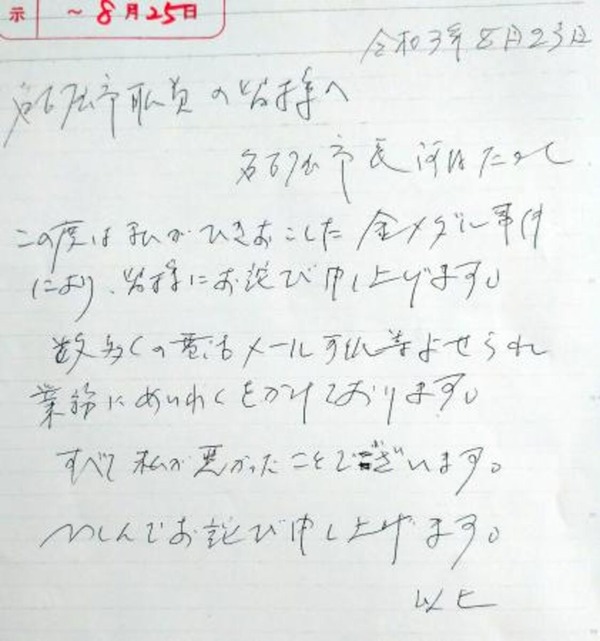 示 ~8月25日
令和3年8月23日
名古屋市職員の皆様へ
名古屋市長河村たかし
この度は私がひきおこした金メダル事件
により、皆様にお詫び申し上げます。
数多くの電話メール手紙等よせられ
業務にめいわくをかけております。
すべて私が悪かったことでございます。
つつしんでお詫び申し上げます。
以上